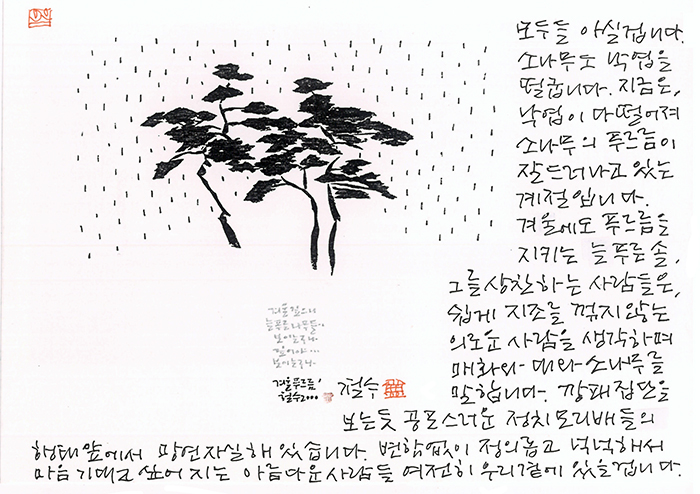 모두들 아실겁니다.
소나무도 낙엽을
떨굽니다. 지금은,
낙엽이 다 떨어져
소나무의 푸르름이
잘 드러나고 있는
계절입니다.
겨울에도 푸르름을
지키는 늘푸른 솔,
그를 상찬하는 사람들은,
쉽게 지조를 꺾지 않는
의로운 사람을 생각하며
매화와 대와 소나무를
말합니다. 깡패집단을
보는듯 공포스러운 정치모리배들의
행태앞에서 망연자실해 있습니다. 변함없이 정의롭고 넉넉해서
마음 기대고 싶어 지는 아름다운 사람들 여전히 우리곁에 있을겁니다.
겨울 깊으니
늘푸른 나무들이
보이는구나.
깊어야...
보이는구나.
겨울 푸르름'
철수2000
철수